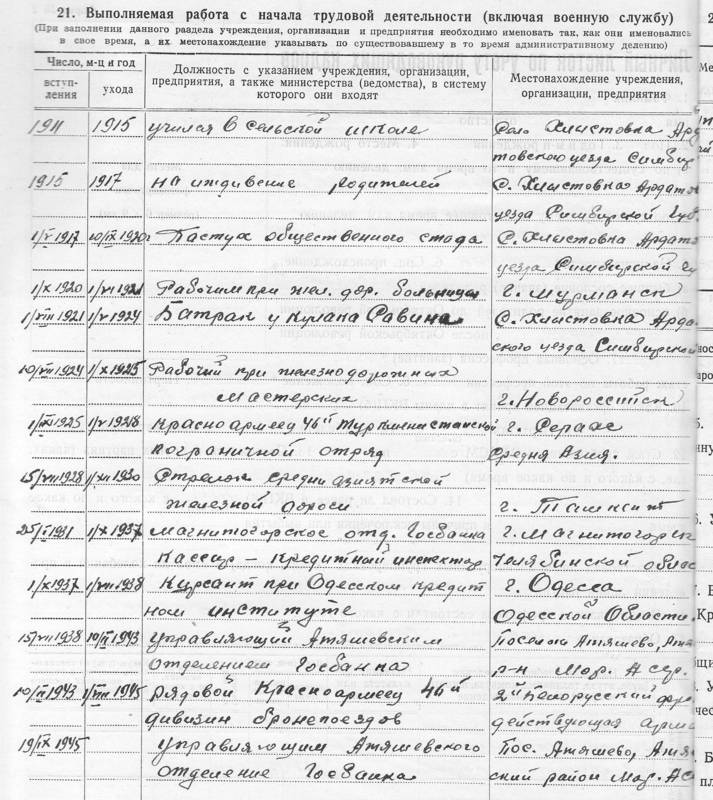 21. Выполняемая работа с начала трудовой деятельности (включая военную службу)
(При заполнении данного раздела учреждения, организации и предприятия необходимо именовать так, как они именовались
в свое время, а их местонахождение указывать по существовавшему в то время административному делению)
Число, м-ц и год
вступ-
ления
ухода
Должность с указанием учреждения, организации,
предприятия, а также министерства (ведомства), в систему
которого они входят
Местонахождение учреждения,
организации, предприятия
1911 1915 учился в сельской школе Село Хлистовка Ард
товского уезда Симбир
1915 1917 на иждивение родителей С. Хлистовка Ардатов
уезда Симбирской Губ.
1/V 1917 10/IX 1920г Пастух общественного стада С. Хлистовка Ардато
уезда Симбирской Гу
1/X 1920 1/VII 1921 Рабочим при жел. дор. больнице г. Мурманск
1/VIII 1921 1/V 1924 Батрак у кулака Савина С. Хлистовка Арда
ского уезда Симбирской
10/VII 1924 1/X 1925 Рабочий при железнодорожных
мастерских г. Новороссийск
1/XI 1925 1/V 1928 Красноармеец 46й Туркменистанской г. Серахс
пограничной отряд Средня Азия.
15/VII 1928 1/XII 1930 Стрелок средни азиятской
железной дороги г. Ташкент
25/I 1931 1/X 1937 Магнитогорское отд. Госбанка г. Магнитогорск
Кассир – кредитный инспектор Челябинской облас
1/X 1937 1/VII 1938 Курсант при Одесском кредит г. Одесса
ном институте Одесской Области
15/VII 1938 10/II 1943 управляющий Атяшевским Поселок Атяшево, Атя
отделением Госбанка р-н Мор. Асср.
10/II 1943 1/VIII 1945 рядовой Красноармеец 46й 2й Белорусский фро
дивизии бронепоездов действующая арми
19/IX 1945 управляющим Атяшевского Пос. Атяшево, Атя
отделение Госбанка ский район Мор. Ас